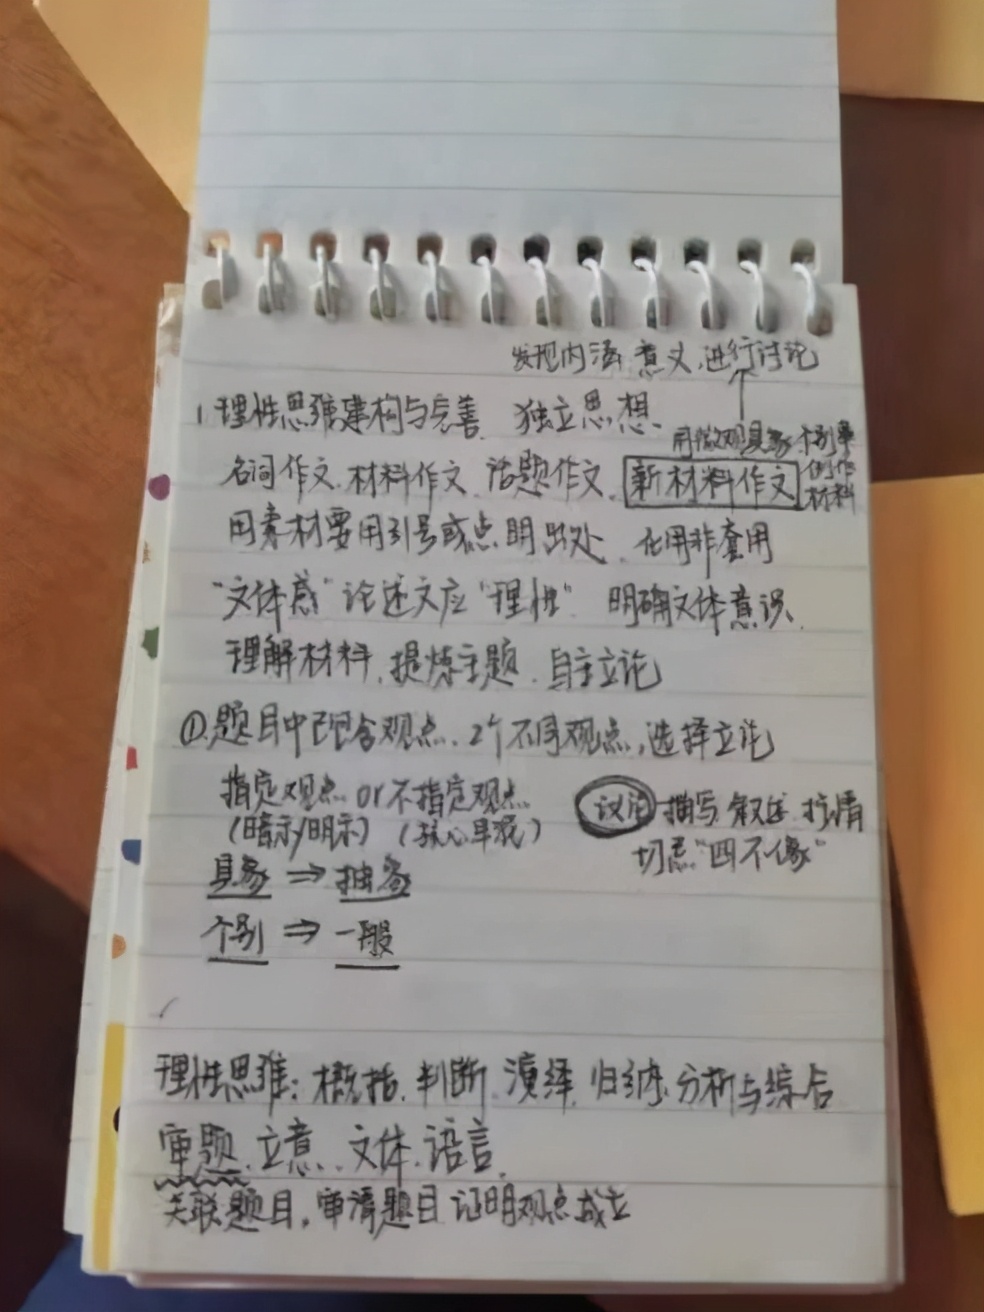 发现内涵、意义,进行讨论
1.理性思维建构与完善、独立思想、
用微观具象、个别事例作材料
名词作文、材料作文、话题作文、新材料作文
用素材要用引号或点明出处、化用非套用
“文体感”论述文应“理性”、明确文体意识、
理解材料、提炼主题、自主立论
①.题目中已包含观点、2个不同观点,选择立论
指定观点 or 不指定观点
(暗示/明示) (核心早现)
议论 描写、叙述、抒情
切忌“四不像”
具象 ⇒ 抽象
个别 ⇒ 一般
理性思维:概括、判断、演绎、归纳、分析与综合
审题、立意、文体、语言、
关联题目,审清题目 证明观点成立